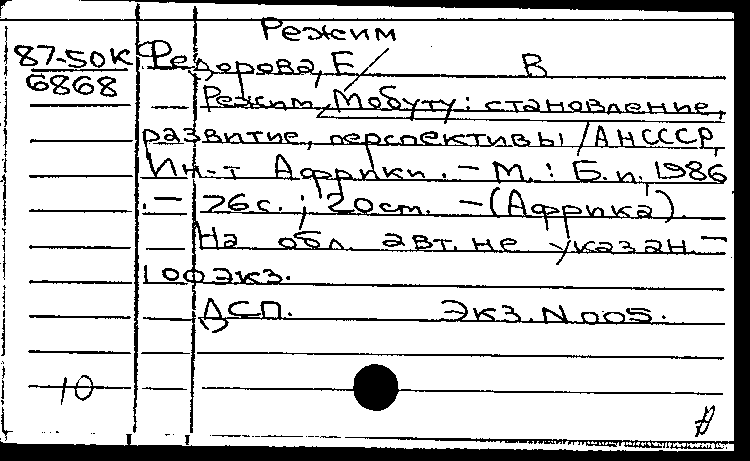 Режим
87-50К Федорова, Е В
6868
Режим Мобуту: становление,
развитие, перспективы / АНСССР,
Ин-т Африки. - М.: Б.и., 1986
. - 76с.; 20см. - (Африка).
На обл. авт. не указан. -
100экз.
ДСП. Экз.N005.
10